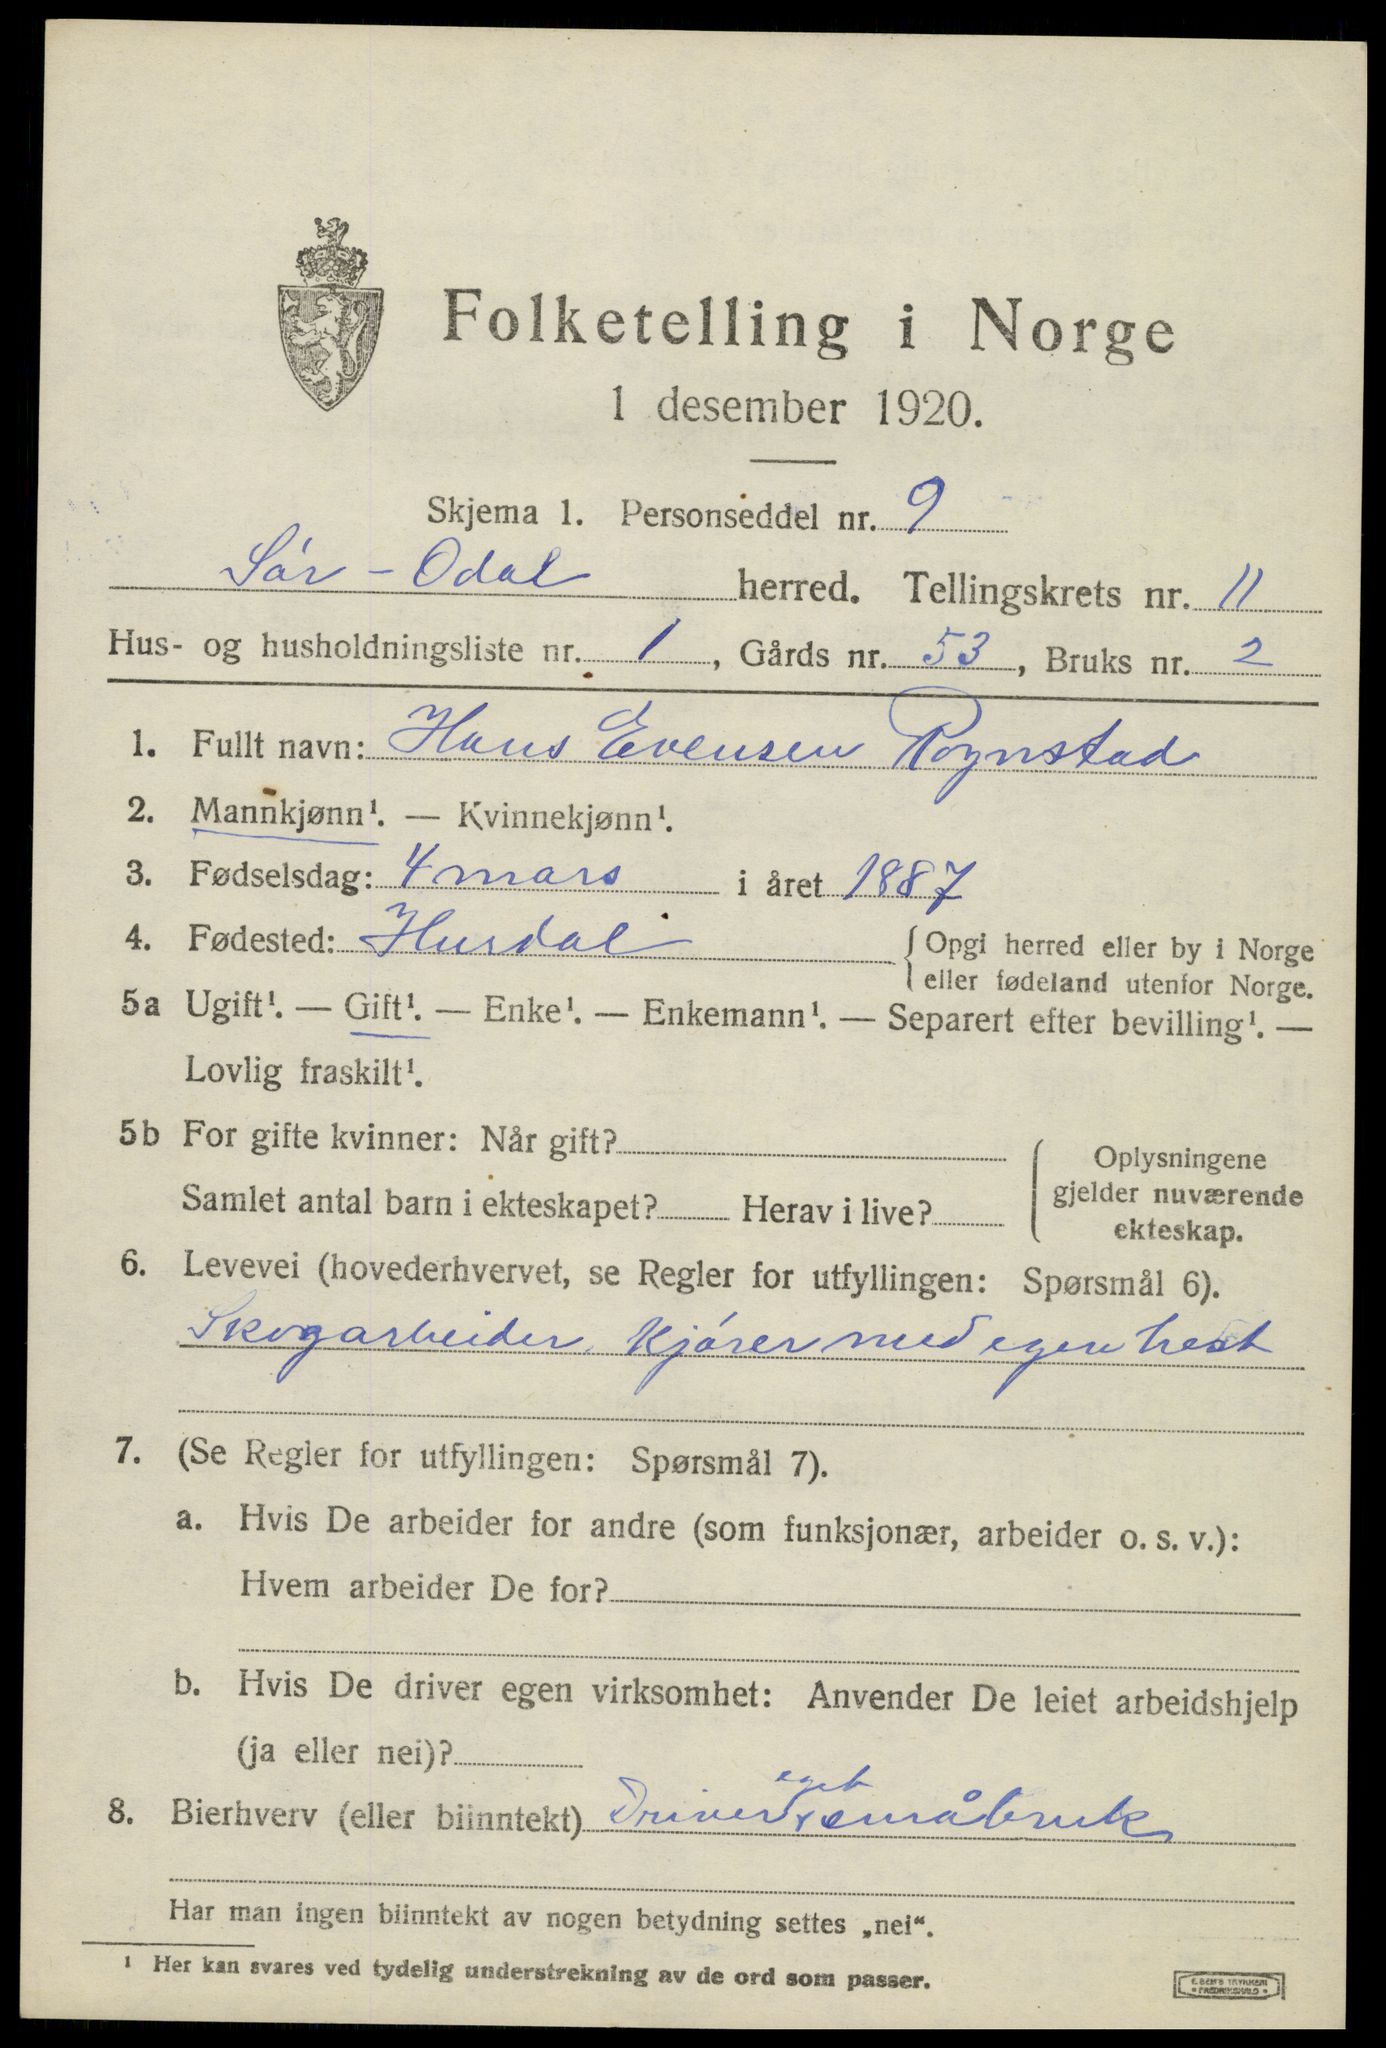 Folketelling i Norge
1 desember 1920.
Skjema 1. Personseddel nr. 9
Sór-Odal herred. Tellingskrets nr. 11
Hus- og husholdningsliste nr. 1, Gårds nr. 53, Bruks nr. 2
1. Fullt navn: Hans Evensen Røynstad
2. Mannkjønn¹. — Kvinnekjønn¹.
3. Fødselsdag: 4 mars i året 1887
4. Fødested: Hurdal { Opgi herred eller by i Norge
eller fødeland utenfor Norge.
5a Ugift¹. — Gift¹. — Enke¹. — Enkemann¹. — Separert efter bevilling¹. —
Lovlig fraskilt¹.
5b For gifte kvinner: Når gift?
Samlet antal barn i ekteskapet? Herav i live?
Oplysningene
gjelder nuværende
ekteskap.
6. Levevei (hovederhvervet, se Regler for utfyllingen: Spørsmål 6).
Skogarbeider, kjórer med egen hest
7. (Se Regler for utfyllingen: Spørsmål 7).
a. Hvis De arbeider for andre (som funksjonær, arbeider o. s. v.):
Hvem arbeider De for?
b. Hvis De driver egen virksomhet: Anvender De leiet arbeidshjelp
(ja eller nei)?
eget
8. Bierhverv (eller biinntekt) Driver småbruk
Har man ingen biinntekt av nogen betydning settes „nei“.
¹ Her kan svares ved tydelig understrekning av de ord som passer.
E. SEM'S TRYKKERI
• FREDRIKSHALD •